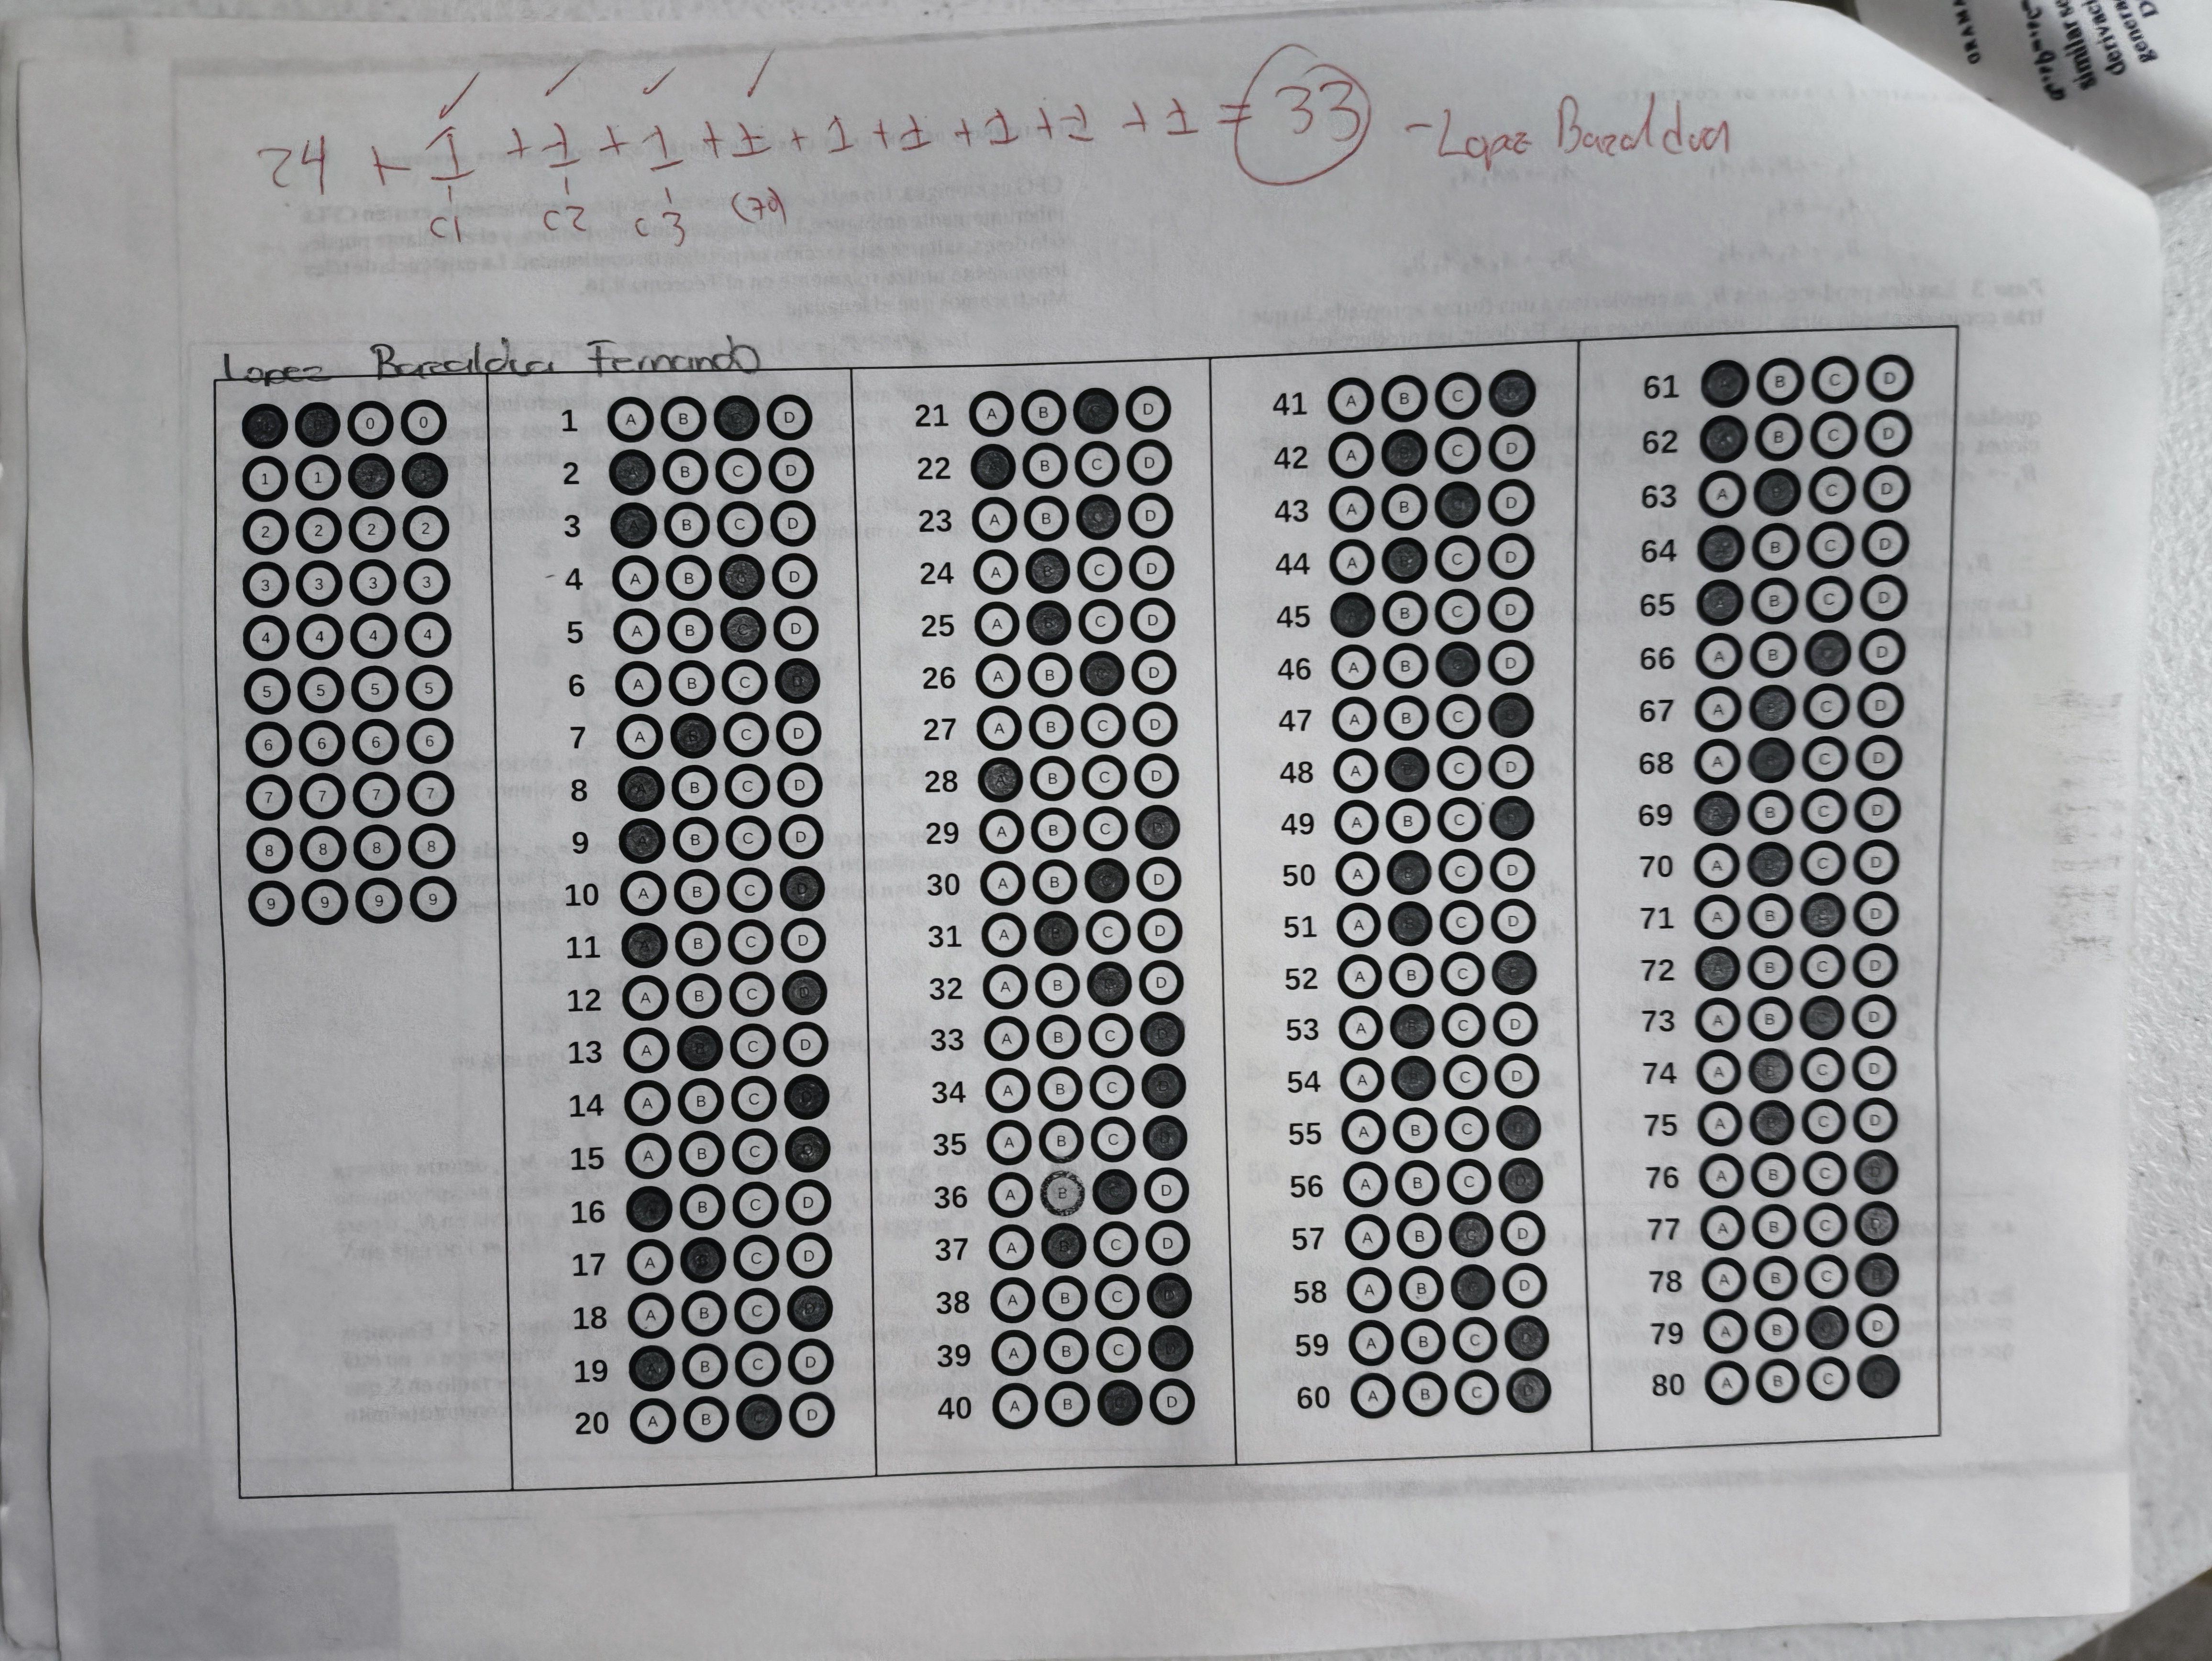 24 + 1 + 1 + 1 + 1 + 1 + 1 + 1 + 1 + 1 = 33 - Lopez Bazaldua
c1 c2 c3 (70)
Lopez Bazaldua Fernando
0 0
1 1
2 2 2 2
3 3 3 3
4 4 4 4
5 5 5 5
6 6 6 6
7 7 7 7
8 8 8 8
9 9 9 9
1 A B C D
2 A B C D
3 A B C D
4 A B C D
5 A B C D
6 A B C D
7 A B C D
8 A B C D
9 A B C D
10 A B C D
11 A B C D
12 A B C D
13 A B C D
14 A B C D
15 A B C D
16 A B C D
17 A B C D
18 A B C D
19 A B C D
20 A B C D
21 A B C D
22 A B C D
23 A B C D
24 A B C D
25 A B C D
26 A B C D
27 A B C D
28 A B C D
29 A B C D
30 A B C D
31 A B C D
32 A B C D
33 A B C D
34 A B C D
35 A B C D
36 A B C D
37 A B C D
38 A B C D
39 A B C D
40 A B C D
41 A B C D
42 A B C D
43 A B C D
44 A B C D
45 A B C D
46 A B C D
47 A B C D
48 A B C D
49 A B C D
50 A B C D
51 A B C D
52 A B C D
53 A B C D
54 A B C D
55 A B C D
56 A B C D
57 A B C D
58 A B C D
59 A B C D
60 A B C D
61 A B C D
62 A B C D
63 A B C D
64 A B C D
65 A B C D
66 A B C D
67 A B C D
68 A B C D
69 A B C D
70 A B C D
71 A B C D
72 A B C D
73 A B C D
74 A B C D
75 A B C D
76 A B C D
77 A B C D
78 A B C D
79 A B C D
80 A B C D